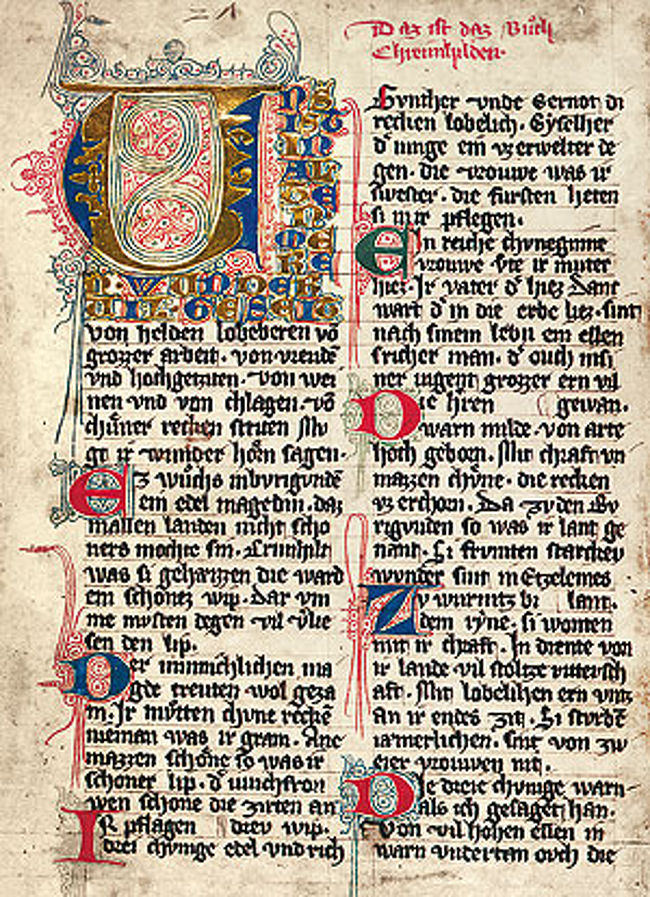 Daz ist daz Bůch
Chreimhilden.
UNS
IST
IN
AL
von helden lobeberen võ
grozzer arbeit. von vreudẽ
vnd hochgeziten. von wei
nen vnd von chlagen. võ
chůner recken striten Mv
gt ir wunder hörn sagen.
Ez wůchs inbvrigundẽ
ein edel magedin. daz
in allen landen nicht scho
ners mochte sin. Crimhilt
was si geheizzen die ward
ein schönez wip. Dar vm
me mvsten degen vil v̓lie
sen den lip.
Der minnichlichen ma
gde treuten wol geza
m. Ir můtten chvne reckẽ
nieman was ir gram. Ane
mazzen schöne so was ir
schoner lip. d̓ iunchfron
wen schone die zirten an
Ir pflagen drev wip.
drei chvnige edel vnd rich
Gvnther vnde Gernot di
recken lobelich. Gyselher
d̓ iunge ein vz erwelter de
gen. die vrouwe was ir
swester. die fursten heten
si in ir pflegen.
Ein reiche chvneginne
vrouwe vte ir muter
hiez. Ir vater d̓ hiez Danc
wart d̓ in die erbe liez. sint
nach sinem lebn ein ellen
tricher man. d̓ ouch in si
ner iugent grozzer ern vil
Die hren gewan.
warn milde. von arte
hoch geborn. Mit chraft vn
mazzen chvne. die recken
vz erchorn. Da zv den Bv
rigvnden so was ir lant ge
nant. Si frvmten starchev
wunder sint in Etzelenes
Zv wurmtz bi lant.
dem ryne. si wonten
mit ir chraft. In diente von
ir lande vil stoltze rittersch
aft. Mit lobelichen ern vntz
an ir endes zit. Si sturbẽ
iæmerlichen. sint von zw
eier vrouwen nit.
Die dreie chvnige warn
als ich gesaget han.
Von vil hohen ellen in
warn vndertan ovch die